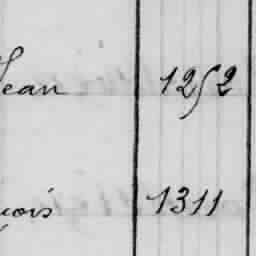 Jean 1252
çois 1311